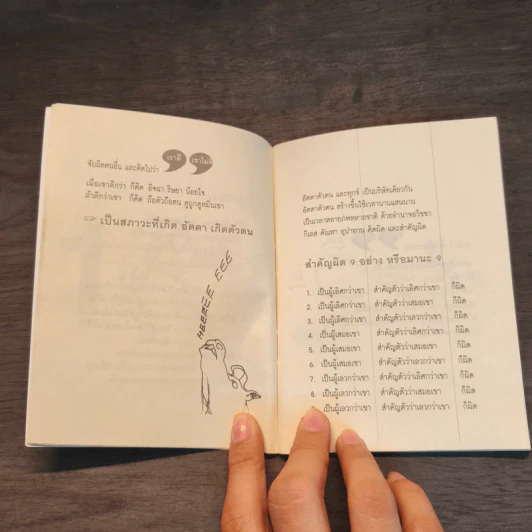 เราดี เขาไม่ดี
จับผิดคนอื่น และคิดไปว่า
เมื่อเขาดีกว่า ก็คิด อิจฉา ริษยา น้อยใจ
ถ้าดีกว่าเขา ก็คิด ถือตัวถือตน ดูถูกดูหมิ่นเขา
เป็นสภาวะที่เกิด อัตตา เกิดตัวตน
อัตตาตัวตน และทุกข์ เป็นบริษัทเดียวกัน
อัตตาตัวตน สร้างขึ้นใช้เวลานานแสนนาน
เป็นเวลาหลายภพหลายชาติ ด้วยอำนาจอวิชชา
กิเลส ตัณหา อุปาทาน คิดผิด และสำคัญผิด
สำคัญผิด ๙ อย่าง หรือมานะ ๙
1. เป็นผู้เลิศกว่าเขา สำคัญตัวว่าเลิศกว่าเขา ก็ผิด
2. เป็นผู้เลิศกว่าเขา สำคัญตัวว่าเสมอเขา ก็ผิด
3. เป็นผู้เลิศกว่าเขา สำคัญตัวว่าเลวกว่าเขา ก็ผิด
4. เป็นผู้เสมอเขา สำคัญตัวว่าเลิศกว่าเขา ก็ผิด
5. เป็นผู้เสมอเขา สำคัญตัวว่าเสมอเขา ก็ผิด
6. เป็นผู้เสมอเขา สำคัญตัวว่าเลวกว่าเขา ก็ผิด
7. เป็นผู้เลวกว่าเขา สำคัญตัวว่าเลิศกว่าเขา ก็ผิด
8. เป็นผู้เลวกว่าเขา สำคัญตัวว่าเสมอเขา ก็ผิด
เป็นผู้เลวกว่าเขา สำคัญตัวว่าเลวกว่าเขา ก็ผิด